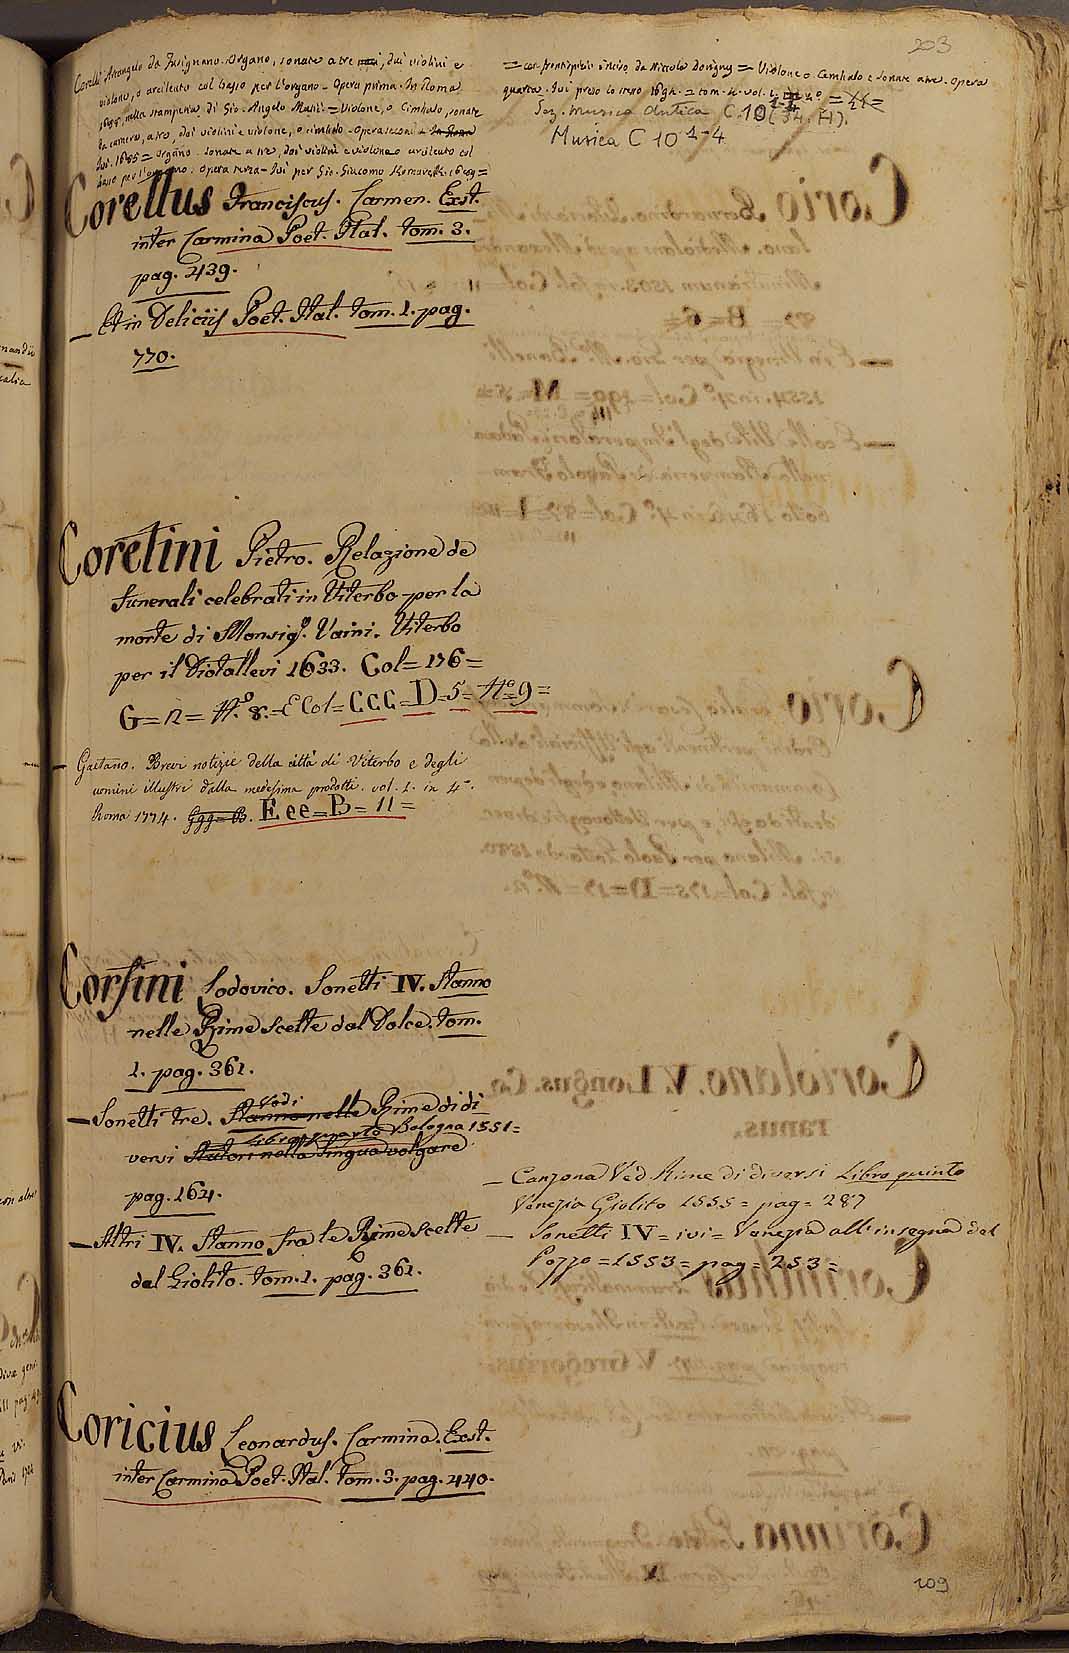 203
Corelli Arcangelo da Fusignano. Organo, sonate a tre, dui violini e
violone, o arcileuto col basso per l'organo - Opera prima. In Roma
1688, nella stamperia di Gio. Angelo Mutii = Violone, o Cimbalo, sonate
da camera, a tre, doi violini e violone, o cimbalo - Opera seconda
Ivi. 1685 = Organo. Sonate a tre, doi violini e violone o arcileuto col
basso per l'organo. Opera terza - Ivi per Gio. Giacomo Komarek. 1689 =
= con frontispizio inciso da Niccolò Dorigny = Violone o Cembalo e sonate a tre. Opera
quarta. Ivi preso lo stesso 1694. = tom. 4. vol. 1.
Sez. Musica Antica C.10
Musica C 10 1-4
Corellus Franciscus. Carmen. Exst.
inter Carmina Poet. Ital. tom. 3.
pag. 439.
— Et in Deliciis Poet. Ital. tom. 1. pag.
770.
Coretini Pietro. Relazione de
funerali celebrati in Viterbo per la
morte di Monsigr. Vaini. Viterbo
per il Diotallevi 1633. Col = 176 =
G = 12 = No. 8. = E Col = CCC = D = 5 = No = 9 =
— Gaetano. Brevi notizie della città di Viterbo e degli
uomini illustri dalla medesima prodotti. vol. 1. in 4°.
Roma 1774. Ggg = B. Eee = B = 11 =
Corsini Lodovico. Sonetti IV. Stanno
nelle Rime scelte dal Dolce. tom.
1. pag. 361.
— Sonetti tre. Stanno nelle Vedi Rime di di
versi Autori nella lingua volgare Libro quarto Bologna 1551 =
pag. 164.
— Altri IV. Stanno fra le Rime scelte
dal Giolito. tom. 1. pag. 361.
— Canzona Ved. Rime di diversi Libro quinto
Venezia Giolito 1555 = pag = 287
— Sonetti IV = ivi = Venezia all'insegna del
Pozzo = 1553 = pag = 253 =
Coricius Leonardus. Carmina. Exst.
inter Carmina Poet. Ital. tom. 3. pag. 440.
109